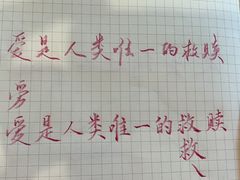 爱是人类唯一的救赎
爱是人类唯一的救赎
救